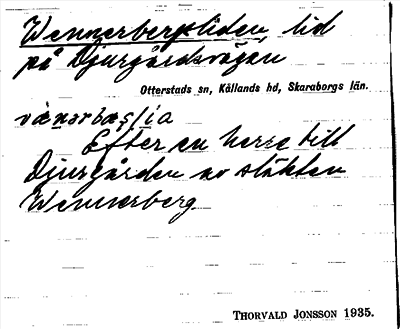 Wennerbergsliden, lid
på Djurgårdsvägen
Otterstads sn, Kållands hd, Skaraborgs län.
Efter en herre till
Djurgården av släkten
Wennerberg
THORVALD JONSSON 1935.